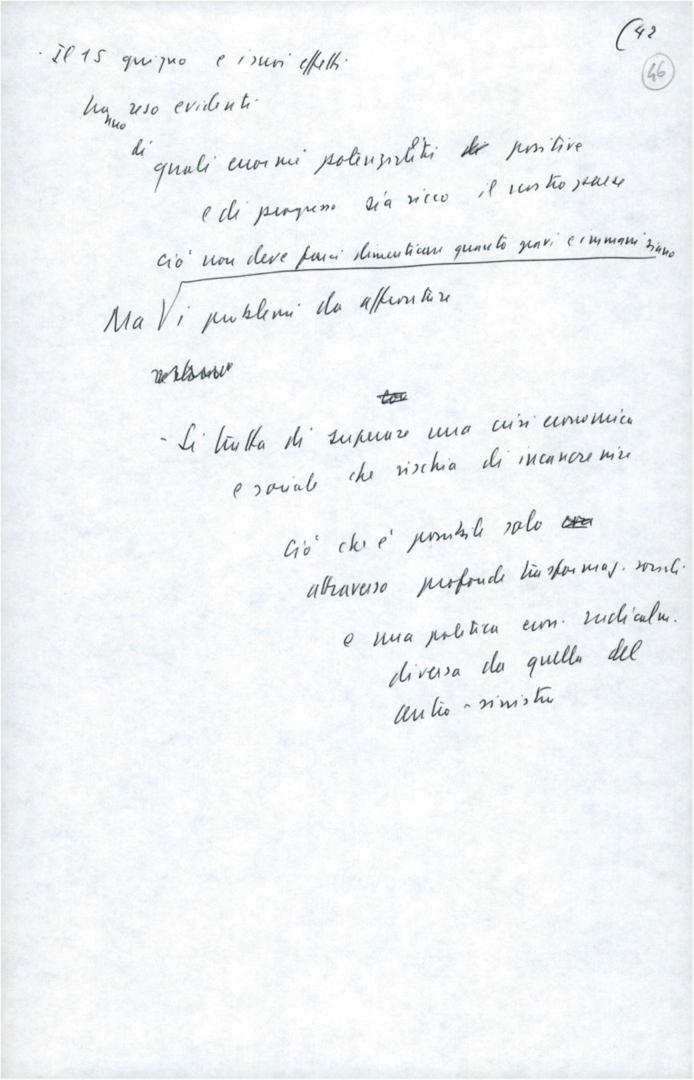 (42
46
· Il 15 giugno e i suoi effetti
hanno reso evidenti
di quali enormi potenzialità positive
e di progresso sia ricco il nostro paese
ciò non deve farci dimenticare quanto gravi e immani siano
Ma i problemi da affrontare
- Si tratta di superare una crisi economica
e sociale che rischia di incancrenire
ciò che è possibile solo
attraverso profonde trasformaz. sociali
e una politica econ. radicalm.
diversa da quella del
centro-sinistra